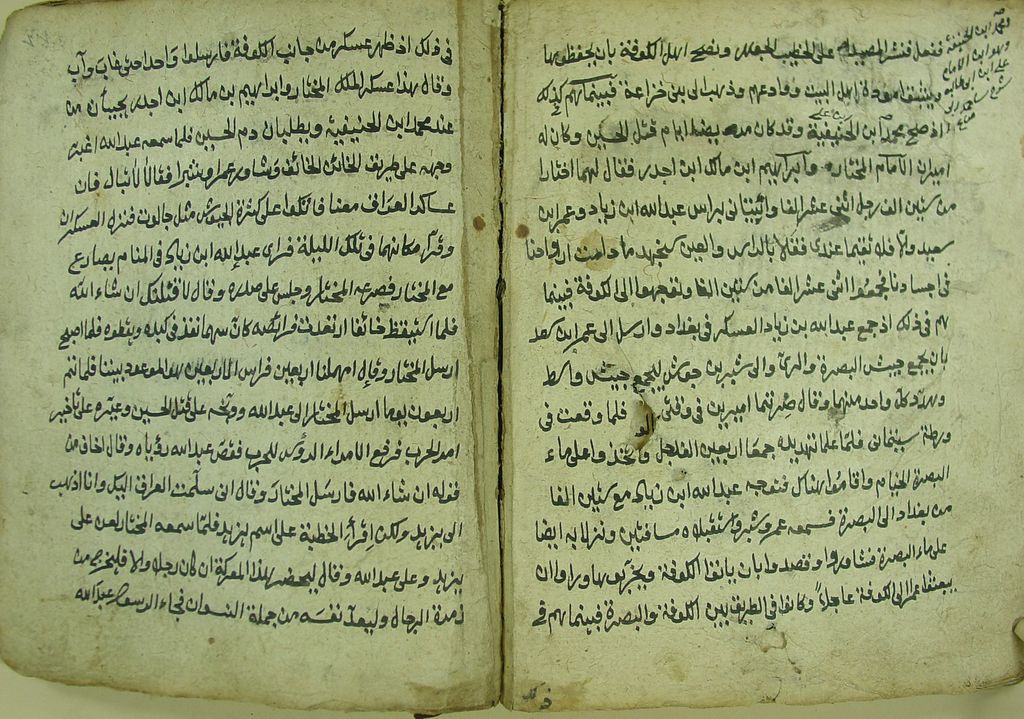 محمد ابن الحنيفة
وهو ابن الامام
علي ابن ابي طالب
ففعل فنشر على الخطيب ونصح اهل الكوفة بان يحفظ بها
اهل البيت وفادعهم وذهب الى بني خزاعة فبينما هم كذلك
اذ صلح محمد ابن الحنيفية وقد كان قتل الحسين وكان له
اميران الامام المختار وابراهيم ابن مالك ابن اجدر فقال لهما اختارا
من ستين الف رجل اثني عشر الفا واتيتاني براس عبد الله ابن زياد وعمر ابن
سعيد والا فلا تقيما عندي فقلا بالراس والعين سنجهد ما دامت ارواحنا
في اجسادنا فجمعوا اثني عشر الفا من ستين الفا وتوجهوا الى الكوفة فبينما
هم في ذلك اذ جمع عبد الله بن زياد العسكر في بغداد وارسل الى عمر ابن سعد
بان يجمع جيش البصرة والري والى شبر بن جوش ليجمع جيش واسط
وهدد كل واحد منهما وقال صرتما اميرين في وقتي فلما وقعت في
ورطة فلما علما تهديده جمعا اربعين الف رجل واتخذوا على ماء
البصرة الخيام واقاموا هناك فتوجه عبد الله ابن زياد مع ستين الفا
من بغداد الى البصرة فسمعه عمر وشبر واستقبلاه مسافتين ونزلا به ايضا
على ماء البصرة فتشاوروا وقصدوا بان ياتوا الكوفة ويخربوها وراوا ان
يبعثوا عمرا الى الكوفة عاجلا وكانوا في الطريق بين الكوفة والبصرة فبينما هم في
ذلك
في ذلك اذ ظهر عسكر من جانب الكوفة فارسلوا واحدا حتى غاب وآب
وقال هذا عسكر الملك المختار وابراهيم بن مالك ابن اجدر يجيئان من
عند محمد ابن الحنيفية ويطلبان دم الحسين فلما سمعه عبد الله اغبر
وجهه على طريق الخائن الخائف وشاور عمرا وشبرا فقالا لا تبال فان
عساكر العراق معنا فاتكلوا على كثرة الجيوش مثل جالوت فنزل العسكران
وقرا مكانهما في تلك الليلة فراى عبد الله ابن زياد في المنام يصارع
مع المختار فصرعه المختار وجلس على صدره وقال لاقتلنك ان شاء الله
فلما استيقظ خائفا ارتعدت فرائصه كان سهما نفذ في كبده ويقطعه فلما اصبح
ارسل المختار وقال امهلنا اربعين فراس الاربعين هو الموعود بيننا فلما تم
اربعون يوما ارسل المختار الى عبد الله ووبخه على قتل الحسين وعيره على تاخير
امر الحرب فرفع الامراء الرؤس للحرب فقص عبد الله رؤياه وقال اخاف من
قتله ان شاء الله فارسل المختار وقال اني سلمت العراق اليك وانا اذهب
الى يزيد ولكن اقرأ الخطبة على اسم يزيد فلما سمعه المختار لعن على
يزيد وعلى عبد الله وقال ليحضر لهذا المعركة ان كان رجلا والا فليخرج من
زمرة الرجال وليعد نفسه من جملة النسوان فجاء الرسول عبد الله